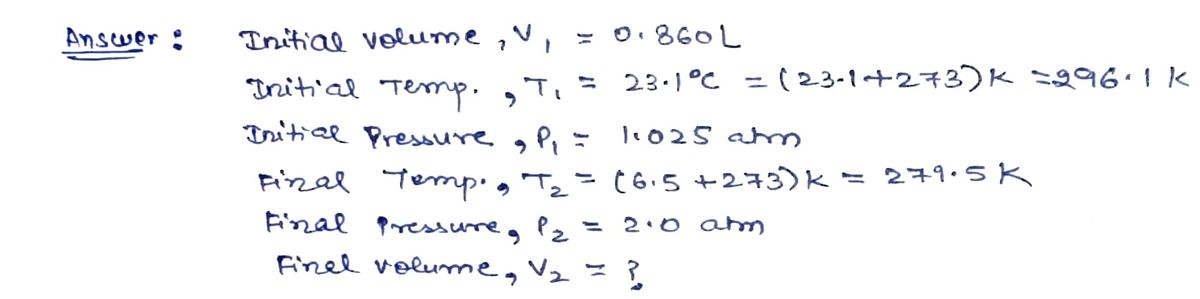 Answer : Initial volume, V₁ = 0.860L
Initial Temp., T₁ = 23.1°C = (23.1+273)K = 296.1 K
Initial Pressure, P₁ = 1.025 atm
Final Temp., T₂ = (6.5+273)K = 279.5 K
Final Pressure, P₂ = 2.0 atm
Finel volume, V₂ = ?